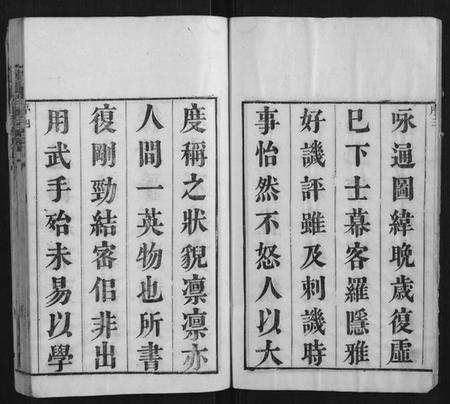 咏通圖緯晩歲復虛
巳下士幕客羅隱雅
好譏評雖及刺譏時
事怡然不怒人以大
度稱之狀貌凛凛亦
人間一英物也所書
復剛勁結審侣非出
用武手殆未易以學